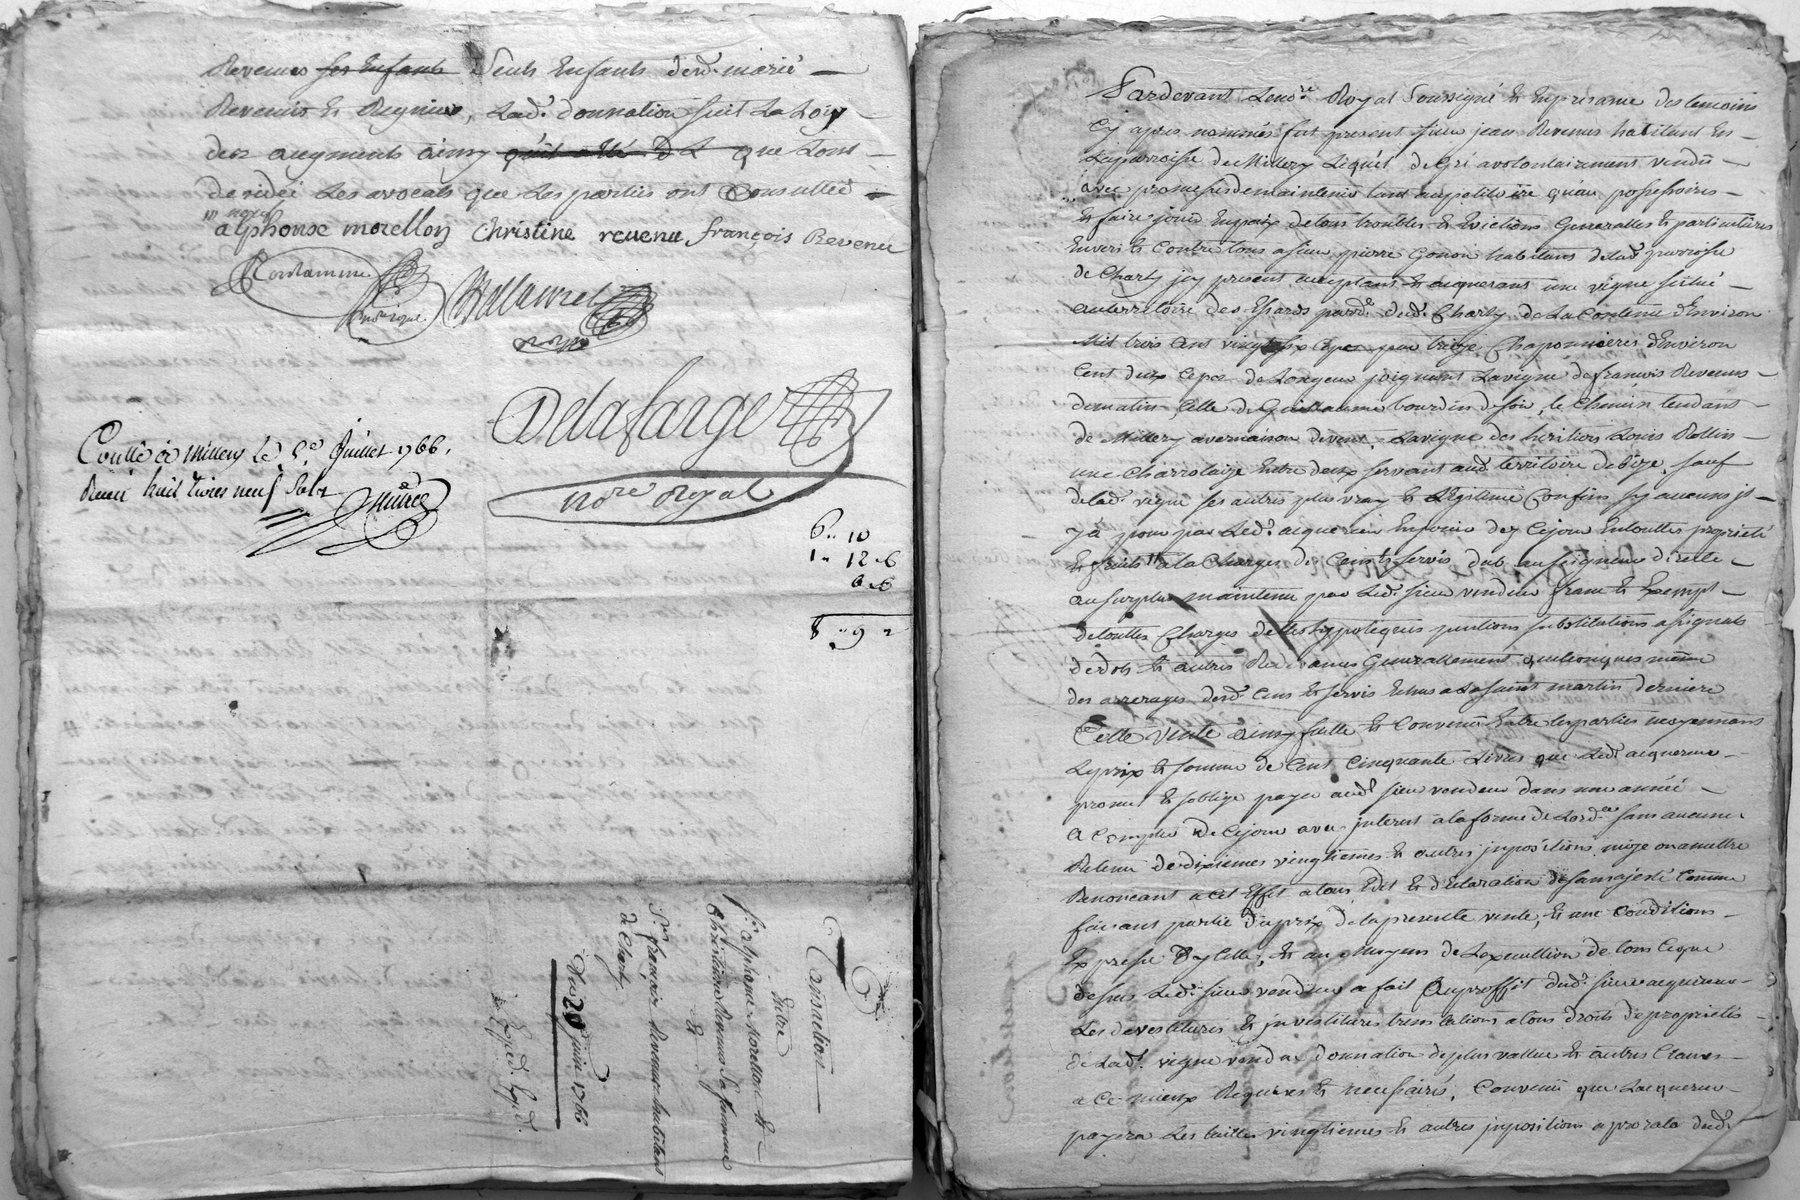 Revenus ses Enfants Seuls Enfants desd. mariés
Revenus et Regnier, Lad. donnation suit La Loy
des augments ainsy qu'il a été d que Lont
decidé Les avocats que Les parties ont Consultées
alphonse morellon Christine revenu françois Revenu
Delafarge
no.re Royal
Controllé à Millery Le juillet 1766.
Receu huit livres neuf sols
6 .. 10
1 .. 12 .. 6
6 .. 6
8 .. 9
Transaction
Entre
S.r alphonse Morellon et
Christine Revenu Sa femme
Et
S.r françois Revenu habitant
de Charly
Du 20 juin 1766
Exped. Exped.
Pardevant Le no.re Royal Soussigné et En presence des temoins
Cy apres nommés fut present sieur jean Revenus habitant En
La parroisse de Millery Lequel de gré a volontairement vendu
avec promesse de maintenir tant au petitoire qu'au possessoire
et faire jouir En paix de tous troubles et Evictions Generalles et particulieres
Envers et Contre tous a sieur pierre Gonon habitant de lad. parroisse
de Charly jcy present acceptant et acquerant une vigne scitué
au territoire des Essards parr.e dud. Charly de La Contenue d'Environ
mil trois Cent vingt six Ceps pour treize Chaponnieres d'Environ
Cent deux Ceps de Longeur joignant La vigne de francois Revenus
de matin Celle de Guillaume bourdin de soir, le Chemin tendant
de Millery a vernaison de vent, La vigne des heritiers Louis Rollin
une Charrolaize Entre deux servant aud. territoire de bize, sauf
de lad. vigne ses autres plus vray et Legitime Confins sy aucuns jl
y a pour par Led. acquereur En jouir des Cejour En toutte proprieté
et fruits a la Charges des Cens et servis dub au seigneur directe
au surplus maintenu par Led. sieur vendeur franc et Exempt
de touttes Charges dettes hypoteques pentions substitutions assignats
de dots et autres Redevances Generallement quelconques même
des arrerages desd. Cens et servis Echus a La saint martin derniere
Cette vente ainsy faitte et Convenue Entre les parties moyennant
Le prix et somme de Cent Cinquante Livres que Led. acquereur
promet et soblige payer aud. sieur vendeur dans une année
a Compter de Cejour avec jnterest a la forme de Lord.ce sans aucune
Retenue de dixiemes vingtiemes et autres jmpositions mise ou a mettre
Renoncant a cet Effet a tous Edit et declaration de sa majesté Comme
faisant partie du prix de la presente vente, et une Condition
Expresse D'jcelle, et au Moyens de Lexecution de tous Ceque
dessus Led. sieur vendeur a fait Au proffit dud. sieur acquereur
Les devestitures et jnvestitures translations a tous droits de proprietés
de Lad. vigne vendue donnation de plus vallue et autres Clauses
a Ce mieux Requises et necessaires, Convenu que Lacquereur
payera Les tailles vingtiemes et autres jmpositions a prorata dud.